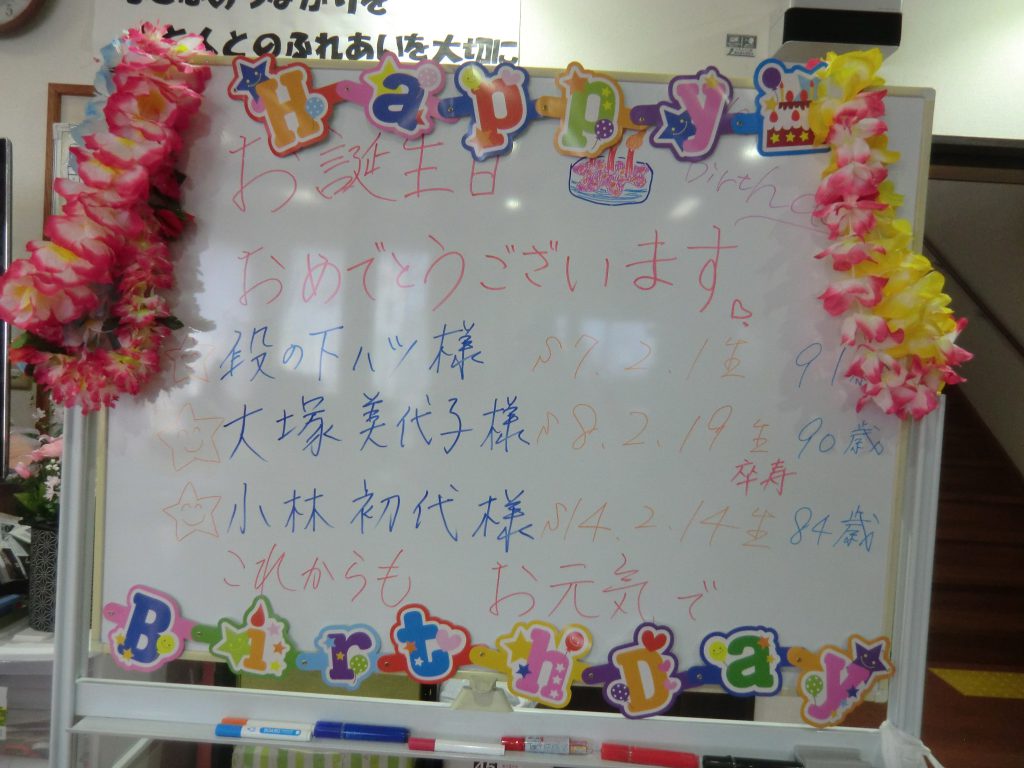 さんとのふれあいを大切に
Happy
お誕生日
birth
おめでとうございます
段の下ハツ様 S7.2.1生 91歳
大塚美代子様 S8.2.19生 90歳
卒寿
小林初代様 S14.2.14生 84歳
これからも お元気で
BirthDay